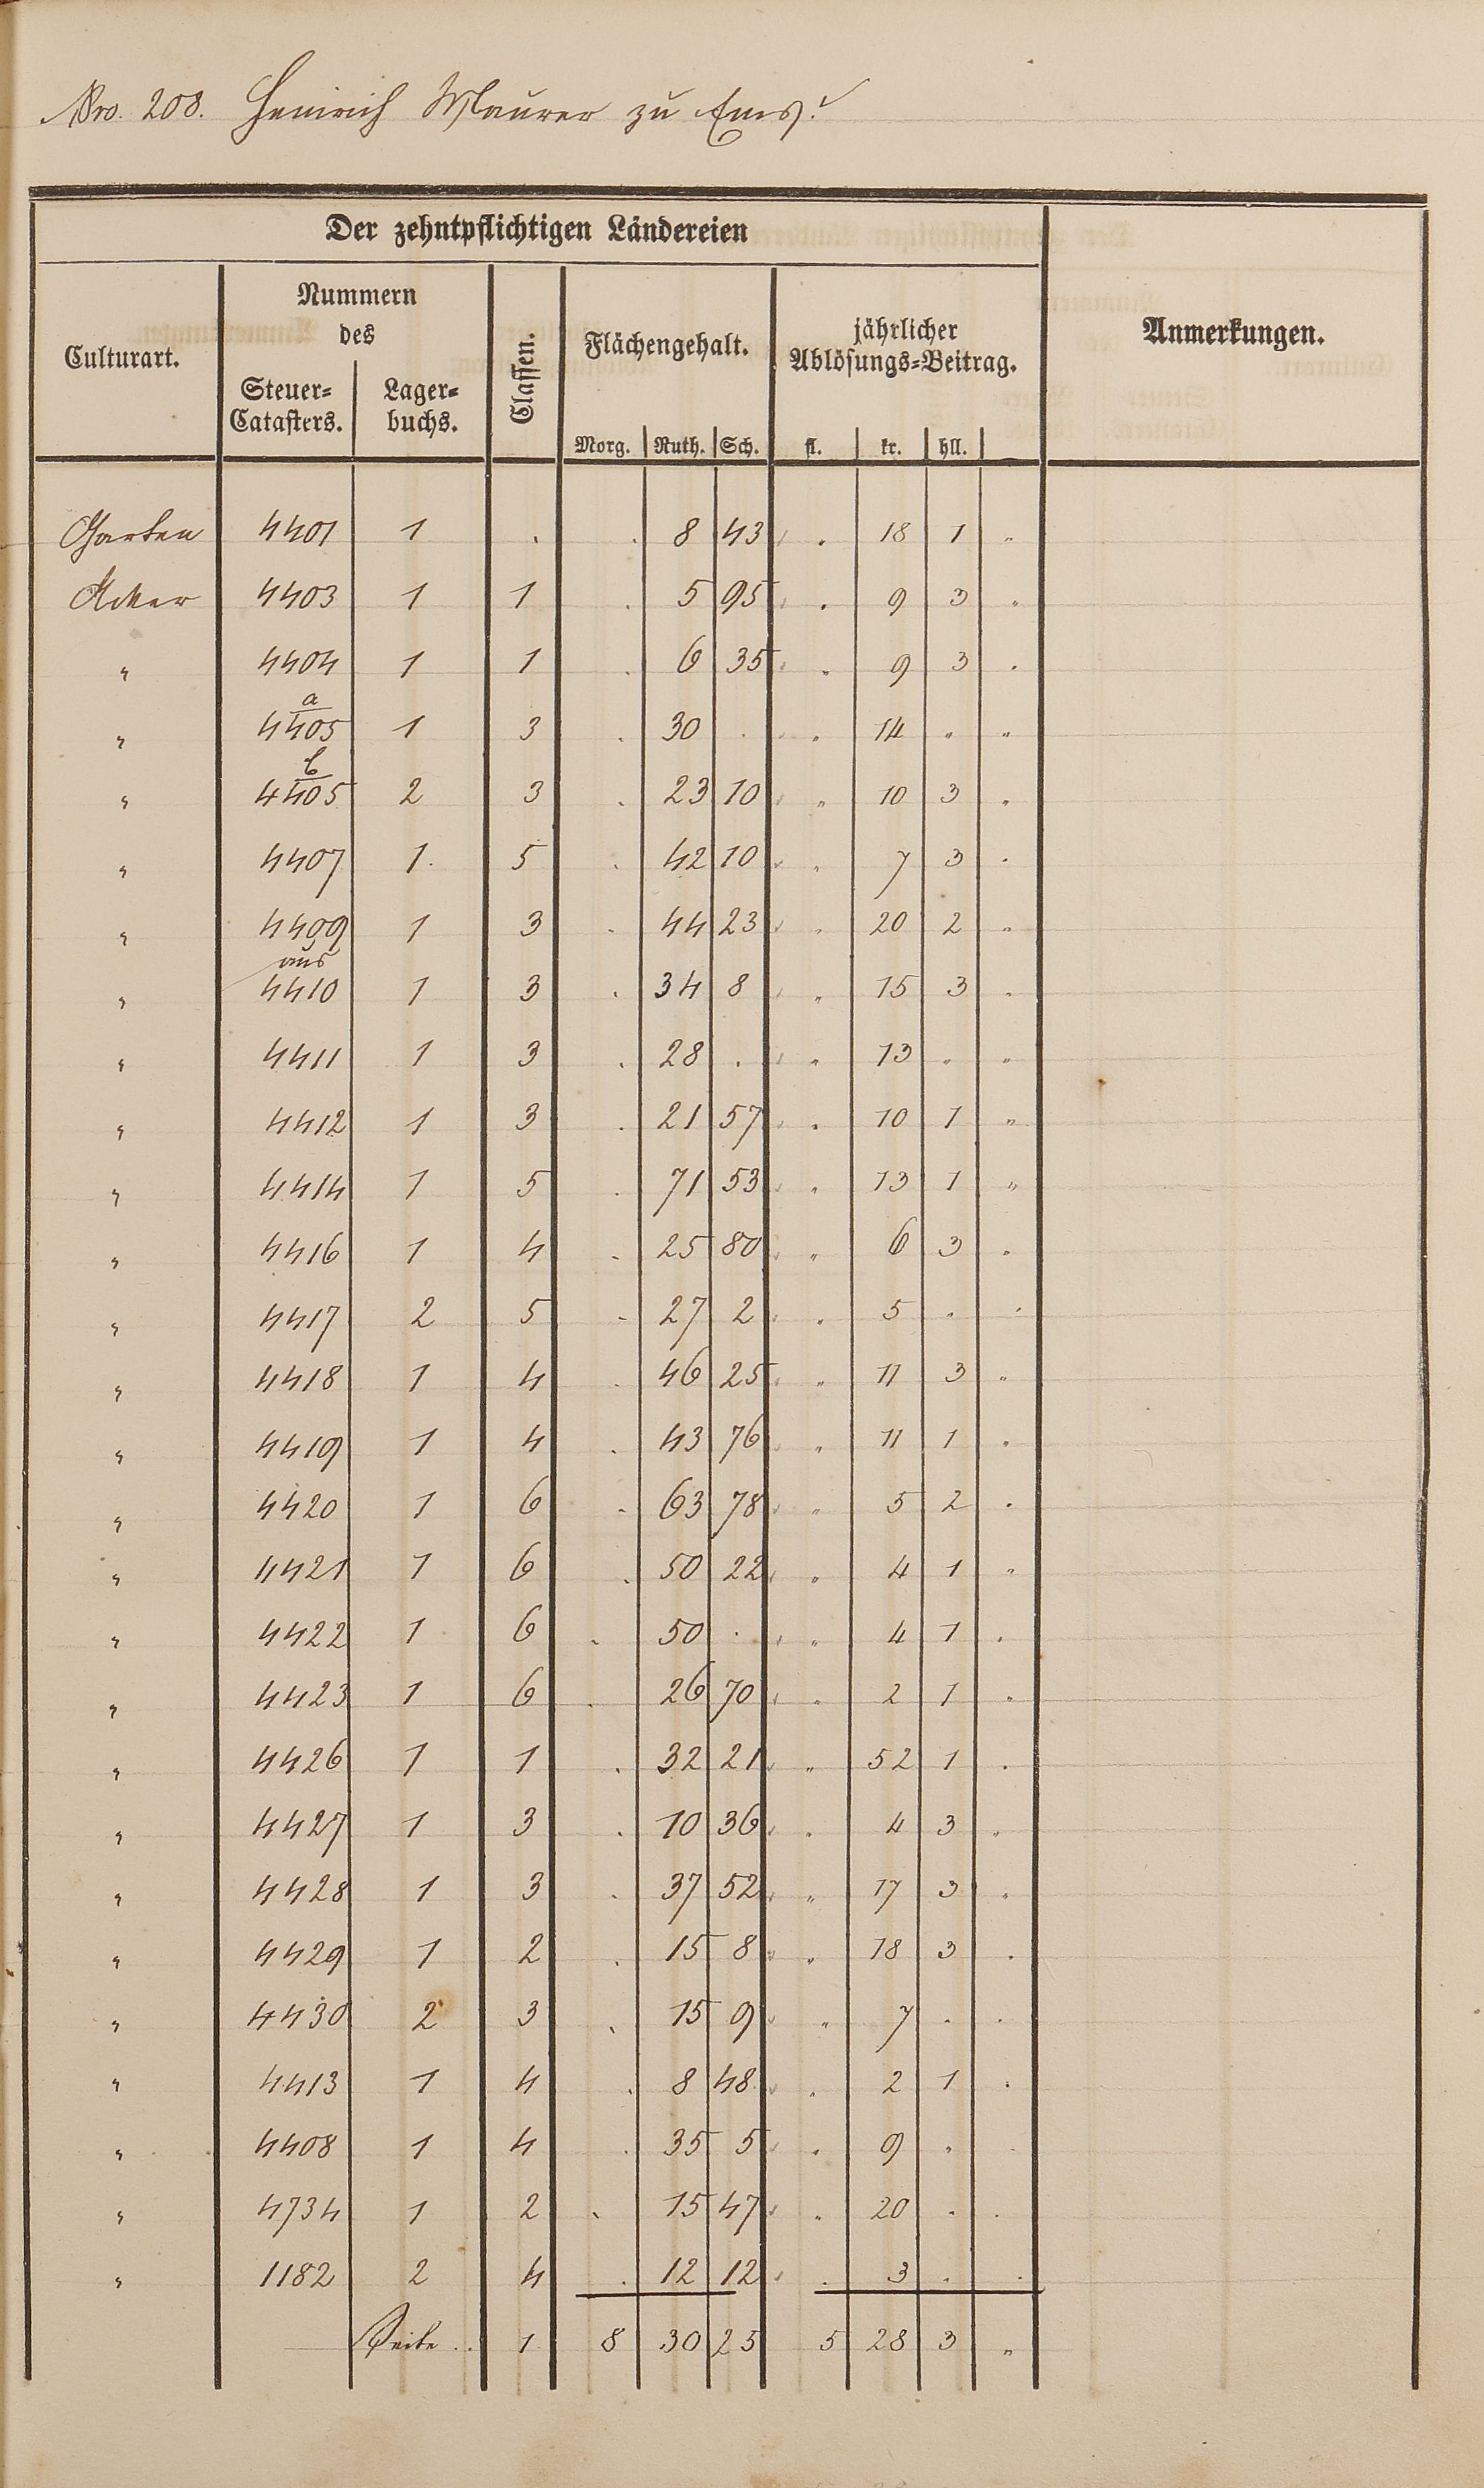 Nro. 208. Heinrich Maurer zu Ems.
Der zehntpflichtigen Ländereien
Culturart. Nummern des Steuer-Catasters. Lagerbuchs. Classen. Flächengehalt. Morg. Ruth. Sch. jährlicher Ablösungs-Beitrag. fl. kr. hll. Anmerkungen.
Garten 4401 1 . . 8 43 . 18 1 "
Acker 4403 1 1 . 5 95 . 9 3 "
" 4404 1 1 . 6 35 " 9 3 .
" a/4405 1 3 . 30 . " 14 " "
" b/4405 2 3 . 23 10 " 10 3 "
" 4407 1. 5 . 42 10 " 7 3 .
" 4409 1 3 . 44 23 " 20 2 "
" aus 4410 1 3 . 34 8 " 15 3 "
" 4411 1 3 . 28 . " 13 " "
" 4412 1 3 . 21 57 . 10 1 "
" 4414 1 5 . 71 53 " 13 1 "
" 4416 1 4 . 25 80 " 6 3 "
" 4417 2 5 . 27 2 " 5 . .
" 4418 1 4 . 46 25 " 11 3 "
" 4419 1 4 . 43 76 " 11 1 "
" 4420 1 6 . 63 78 " 5 2 .
" 4421 1 6 . 50 22 " 4 1 "
" 4422 1 6 . 50 . " 4 1 .
" 4423 1 6 . 26 70 " 2 1 "
" 4426 1 1 . 32 21 " 52 1 .
" 4427 1 3 . 10 36 " 4 3 "
" 4428 1 3 . 37 52 " 17 3 "
" 4429 1 2 . 15 8 " 18 3 .
" 4430 2 3 . 15 9 " 7 . .
" 4413 1 4 . 8 48 " 2 1 .
" 4408 1 4 . 35 5 " 9 " .
" 4734 1 2 . 15 47 " 20 . .
" 1182 2 4 . 12 12 . 3 . .
Seite .. 1 8 30 25 5 28 3 "